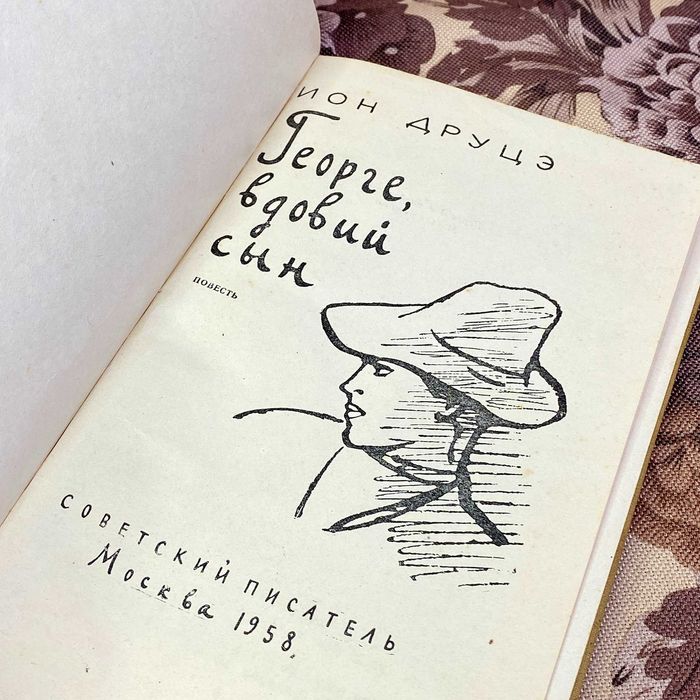 ИОН ДРУЦЭ
Георге,
вдовий
сын
ПОВЕСТЬ
СОВЕТСКИЙ ПИСАТЕЛЬ
Москва 1958.